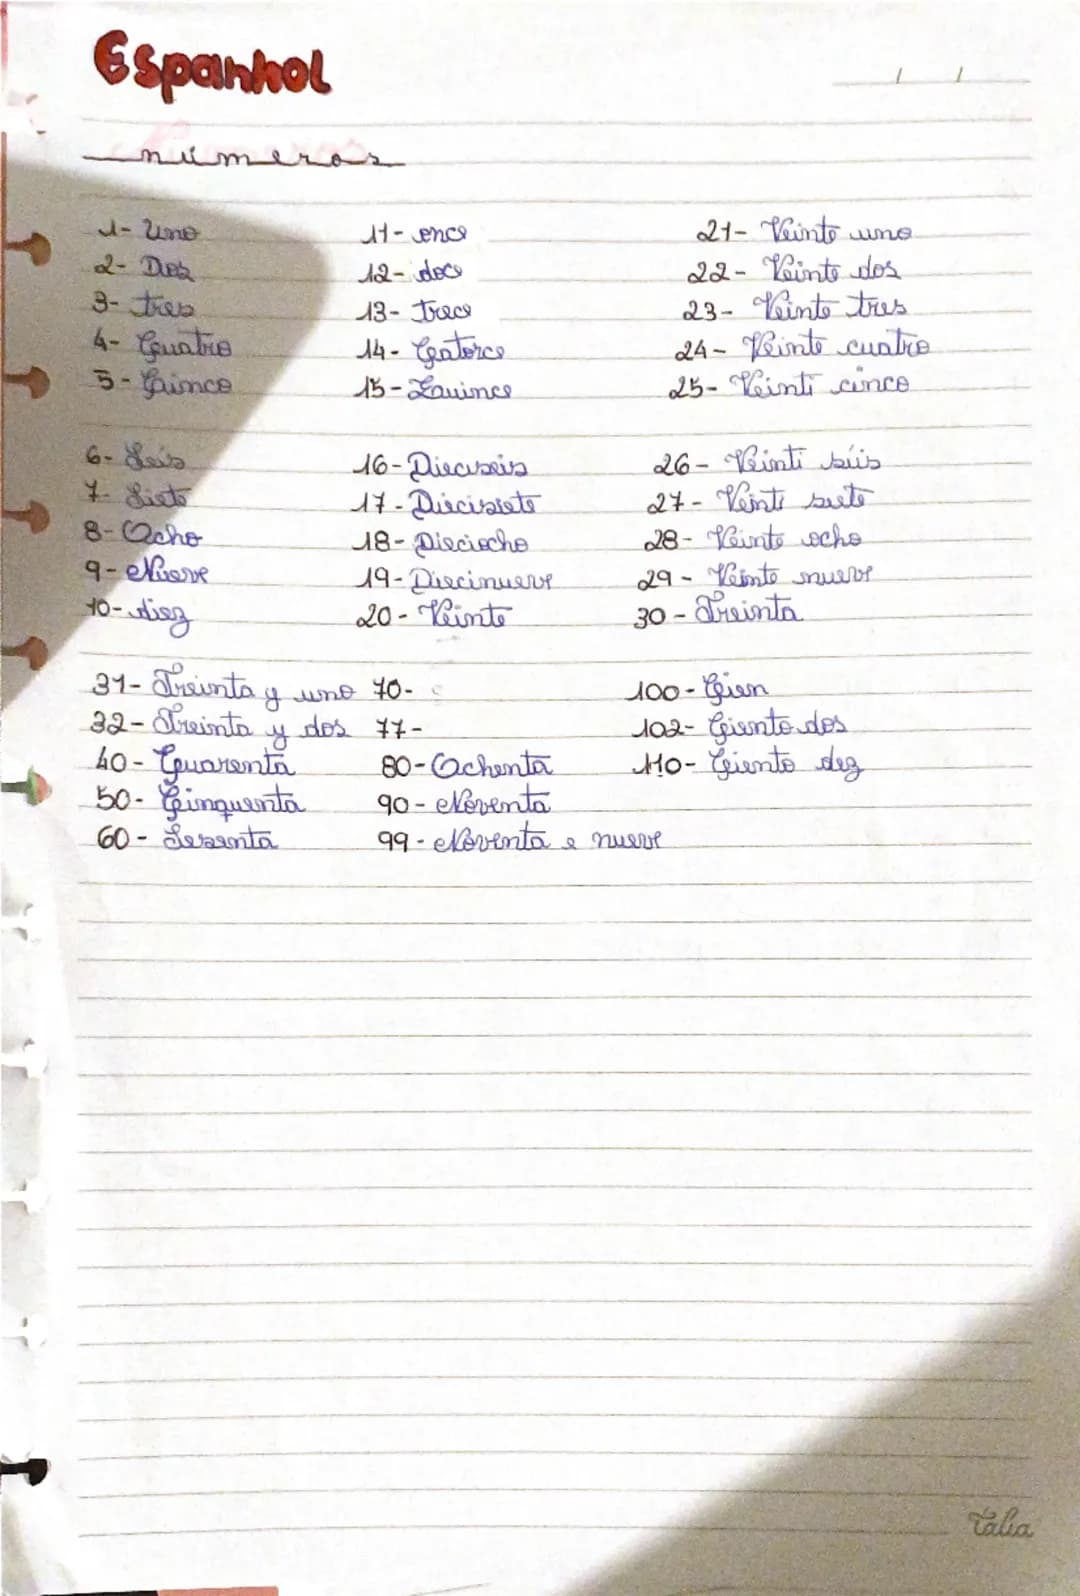 Espanhol
/ /
números
1- Uno 11- once 21- Veinte uno
2- Dos 12- doce 22- Veinte dos
3- tres 13- Trece 23- Veinte tres
4- Cuatro 14- Catorce 24- Veinte cuatro
5- Cinco 15- Quince 25- Veinti cinco
6- Seis 16- Dieciseis 26- Veinti séis
7- Siete 17- Diecisiete 27- Veinti siete
8- Ocho 18- Dieciocho 28- Veinte ocho
9- Nueve 19- Diecinueve 29- Veinte nueve
10- diez 20- Veinte 30- Treinta
31- Treinta y uno 70- 100- Cien
32- Treinta y dos 77- 102- Ciento dos
40- Cuarenta 80- Ochenta 110- Ciento dez
50- Cinquenta 90- Noventa
60- Sesenta 99- Noventa e nueve
Tália